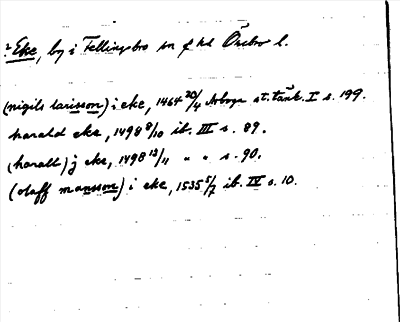 2 Eke, by i Fellingsbro sn o hd Örebro l.
(nigils larisson) i eke, 1464 20/4 Arboga st. tänk. I s. 199.
harald eke, 1498 8/10 ib. III s. 89.
(harall) j eke, 1498 12/11 " " s. 90.
(olaff mansson) i eke, 1535 5/7 ib. IV s. 10.